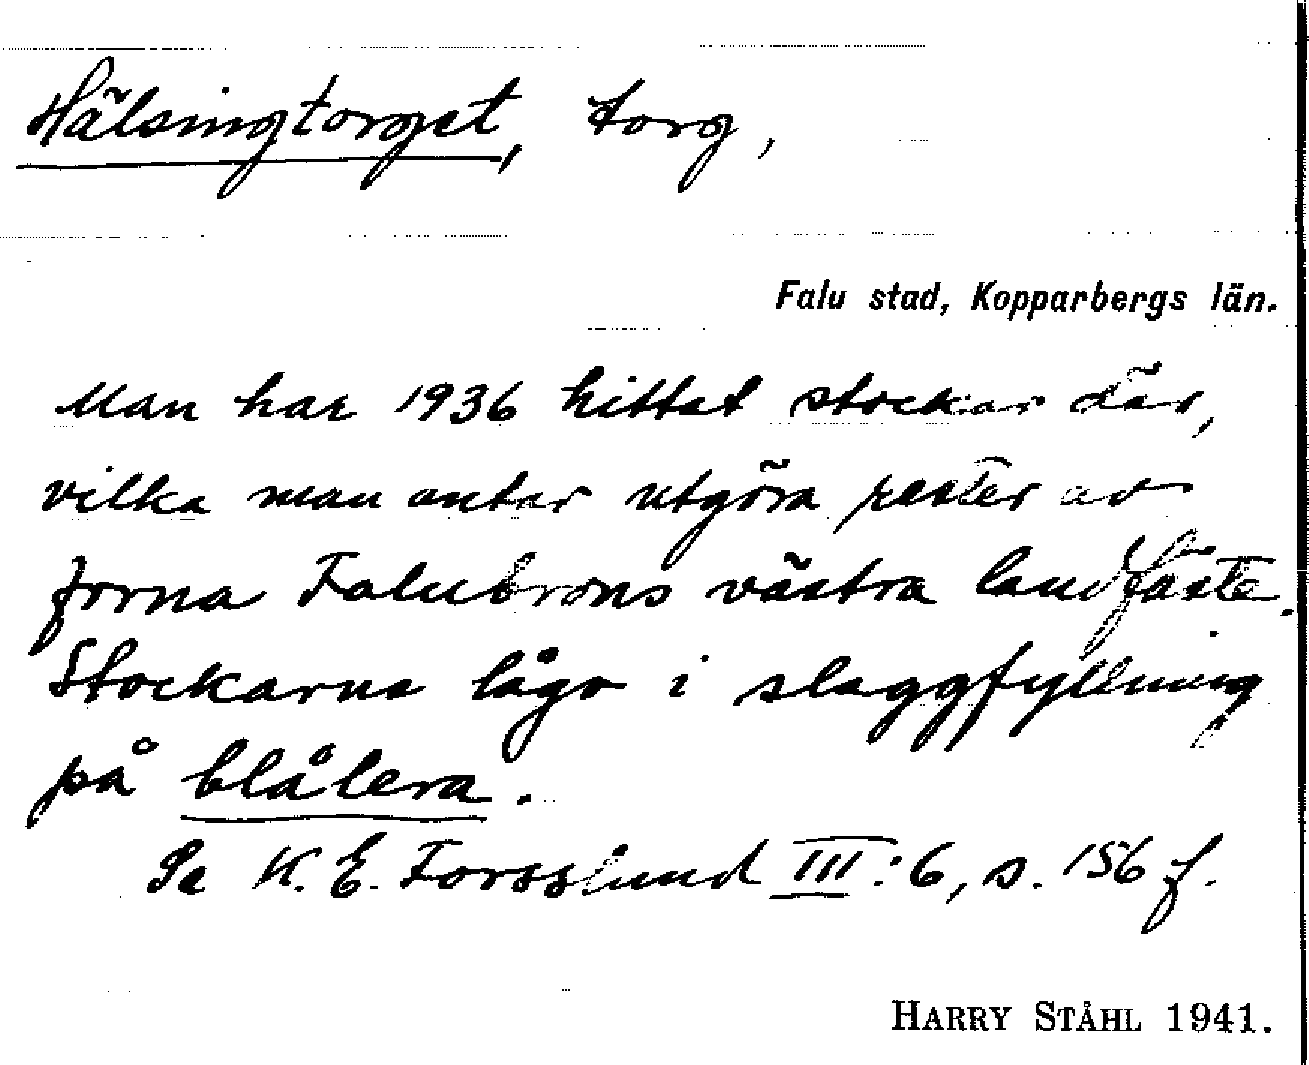 Hälsingtorget, torg,
Falu stad, Kopparbergs län.
Man har 1936 hittat stockar där,
vilka man antar utgöra rester av
forna Falubrons västra landfäste.
Stockarna lågo i slaggfyllning
på blålera.
Se K. E. Forsslund III:6, s. 156 f.
HARRY STÅHL 1941.